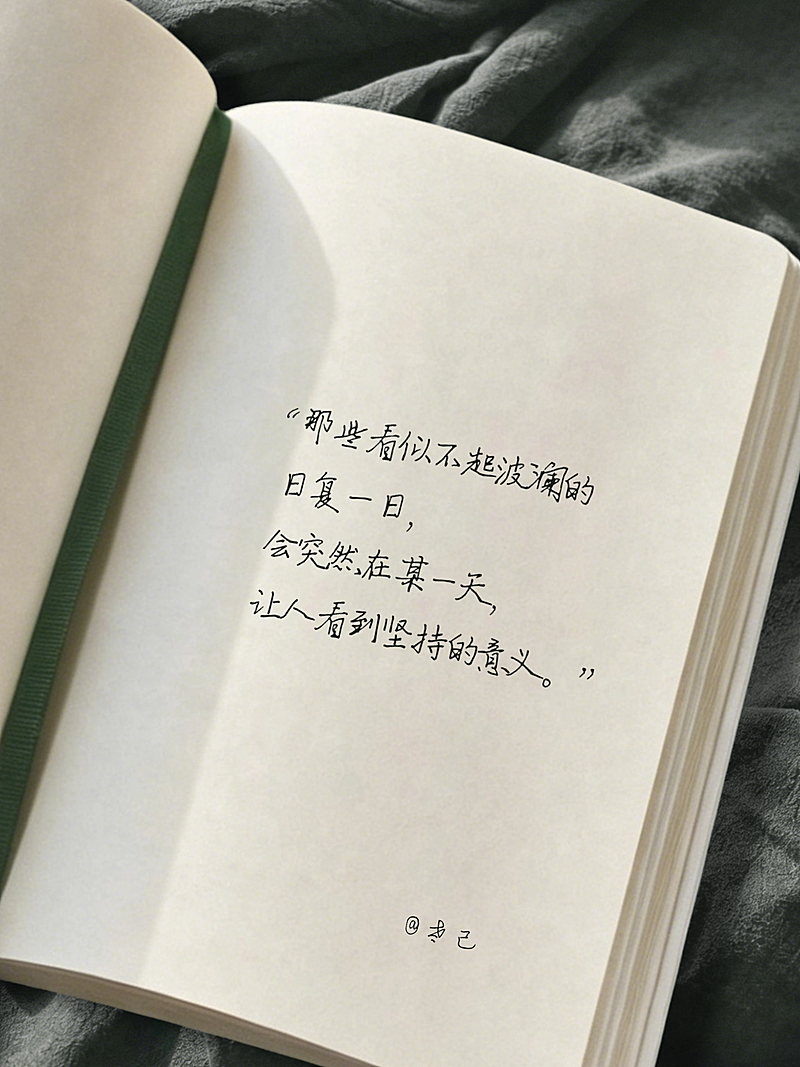 “那些看似不起波澜的
日复一日，
会突然在某一天，
让人看到坚持的意义。”
@ 己